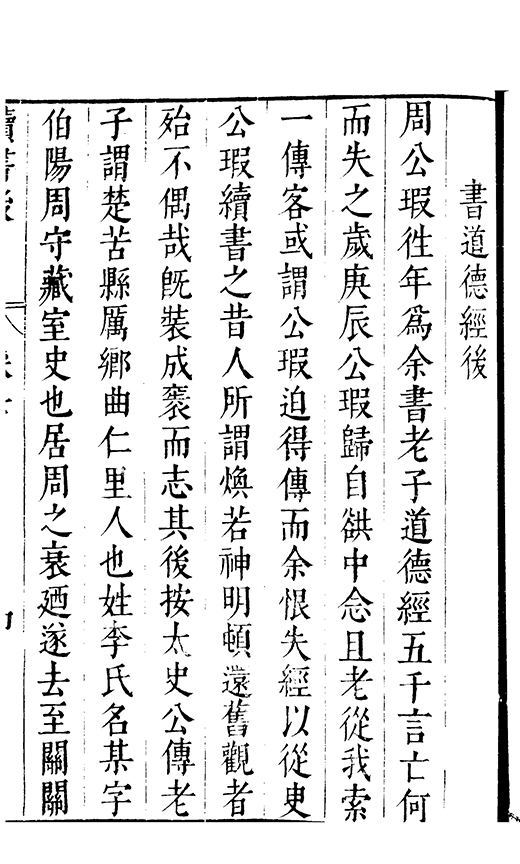 書道德經後
周公瑕徃年爲余書老子道德經五千言亡何
而失之歲庚辰公瑕歸自䜫中念且老從我索
一傳客或謂公瑕迫得傳而余恨失經以從臾
公瑕續書之昔人所謂煥若神明頓還舊觀者
殆不偶哉旣裝成袠而志其後按太史公傳老
子謂楚苦縣厲鄉曲仁里人也姓李氏名某字
伯陽周守藏室史也居周之衰廼遂去至關關